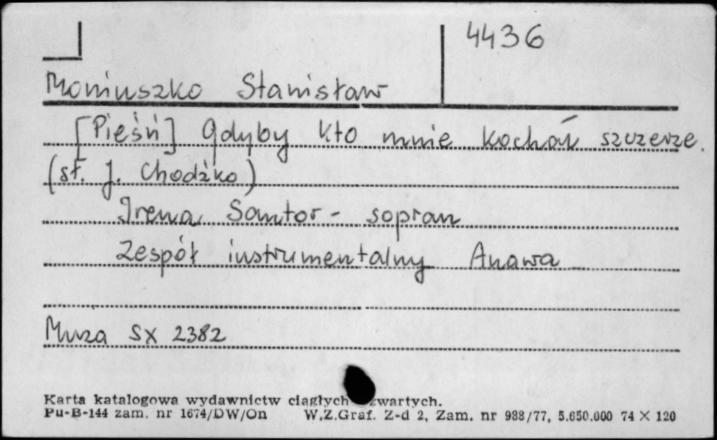 4436
Moniuszko Stanisław
[Pieśń] Gdyby kto mnie kochał szczerze.
(sł. J. Chodźko)
Irena Santor - sopran
Zespół instrumentalny Anawa
Muza SX 2382
Karta katalogowa wydawnictw ciągłych zwartych.
Pu-B-144 zam. nr 1674/DW/On W.Z.Graf. Z-d 2, Zam. nr 988/77, 5.650.000 74 X 120